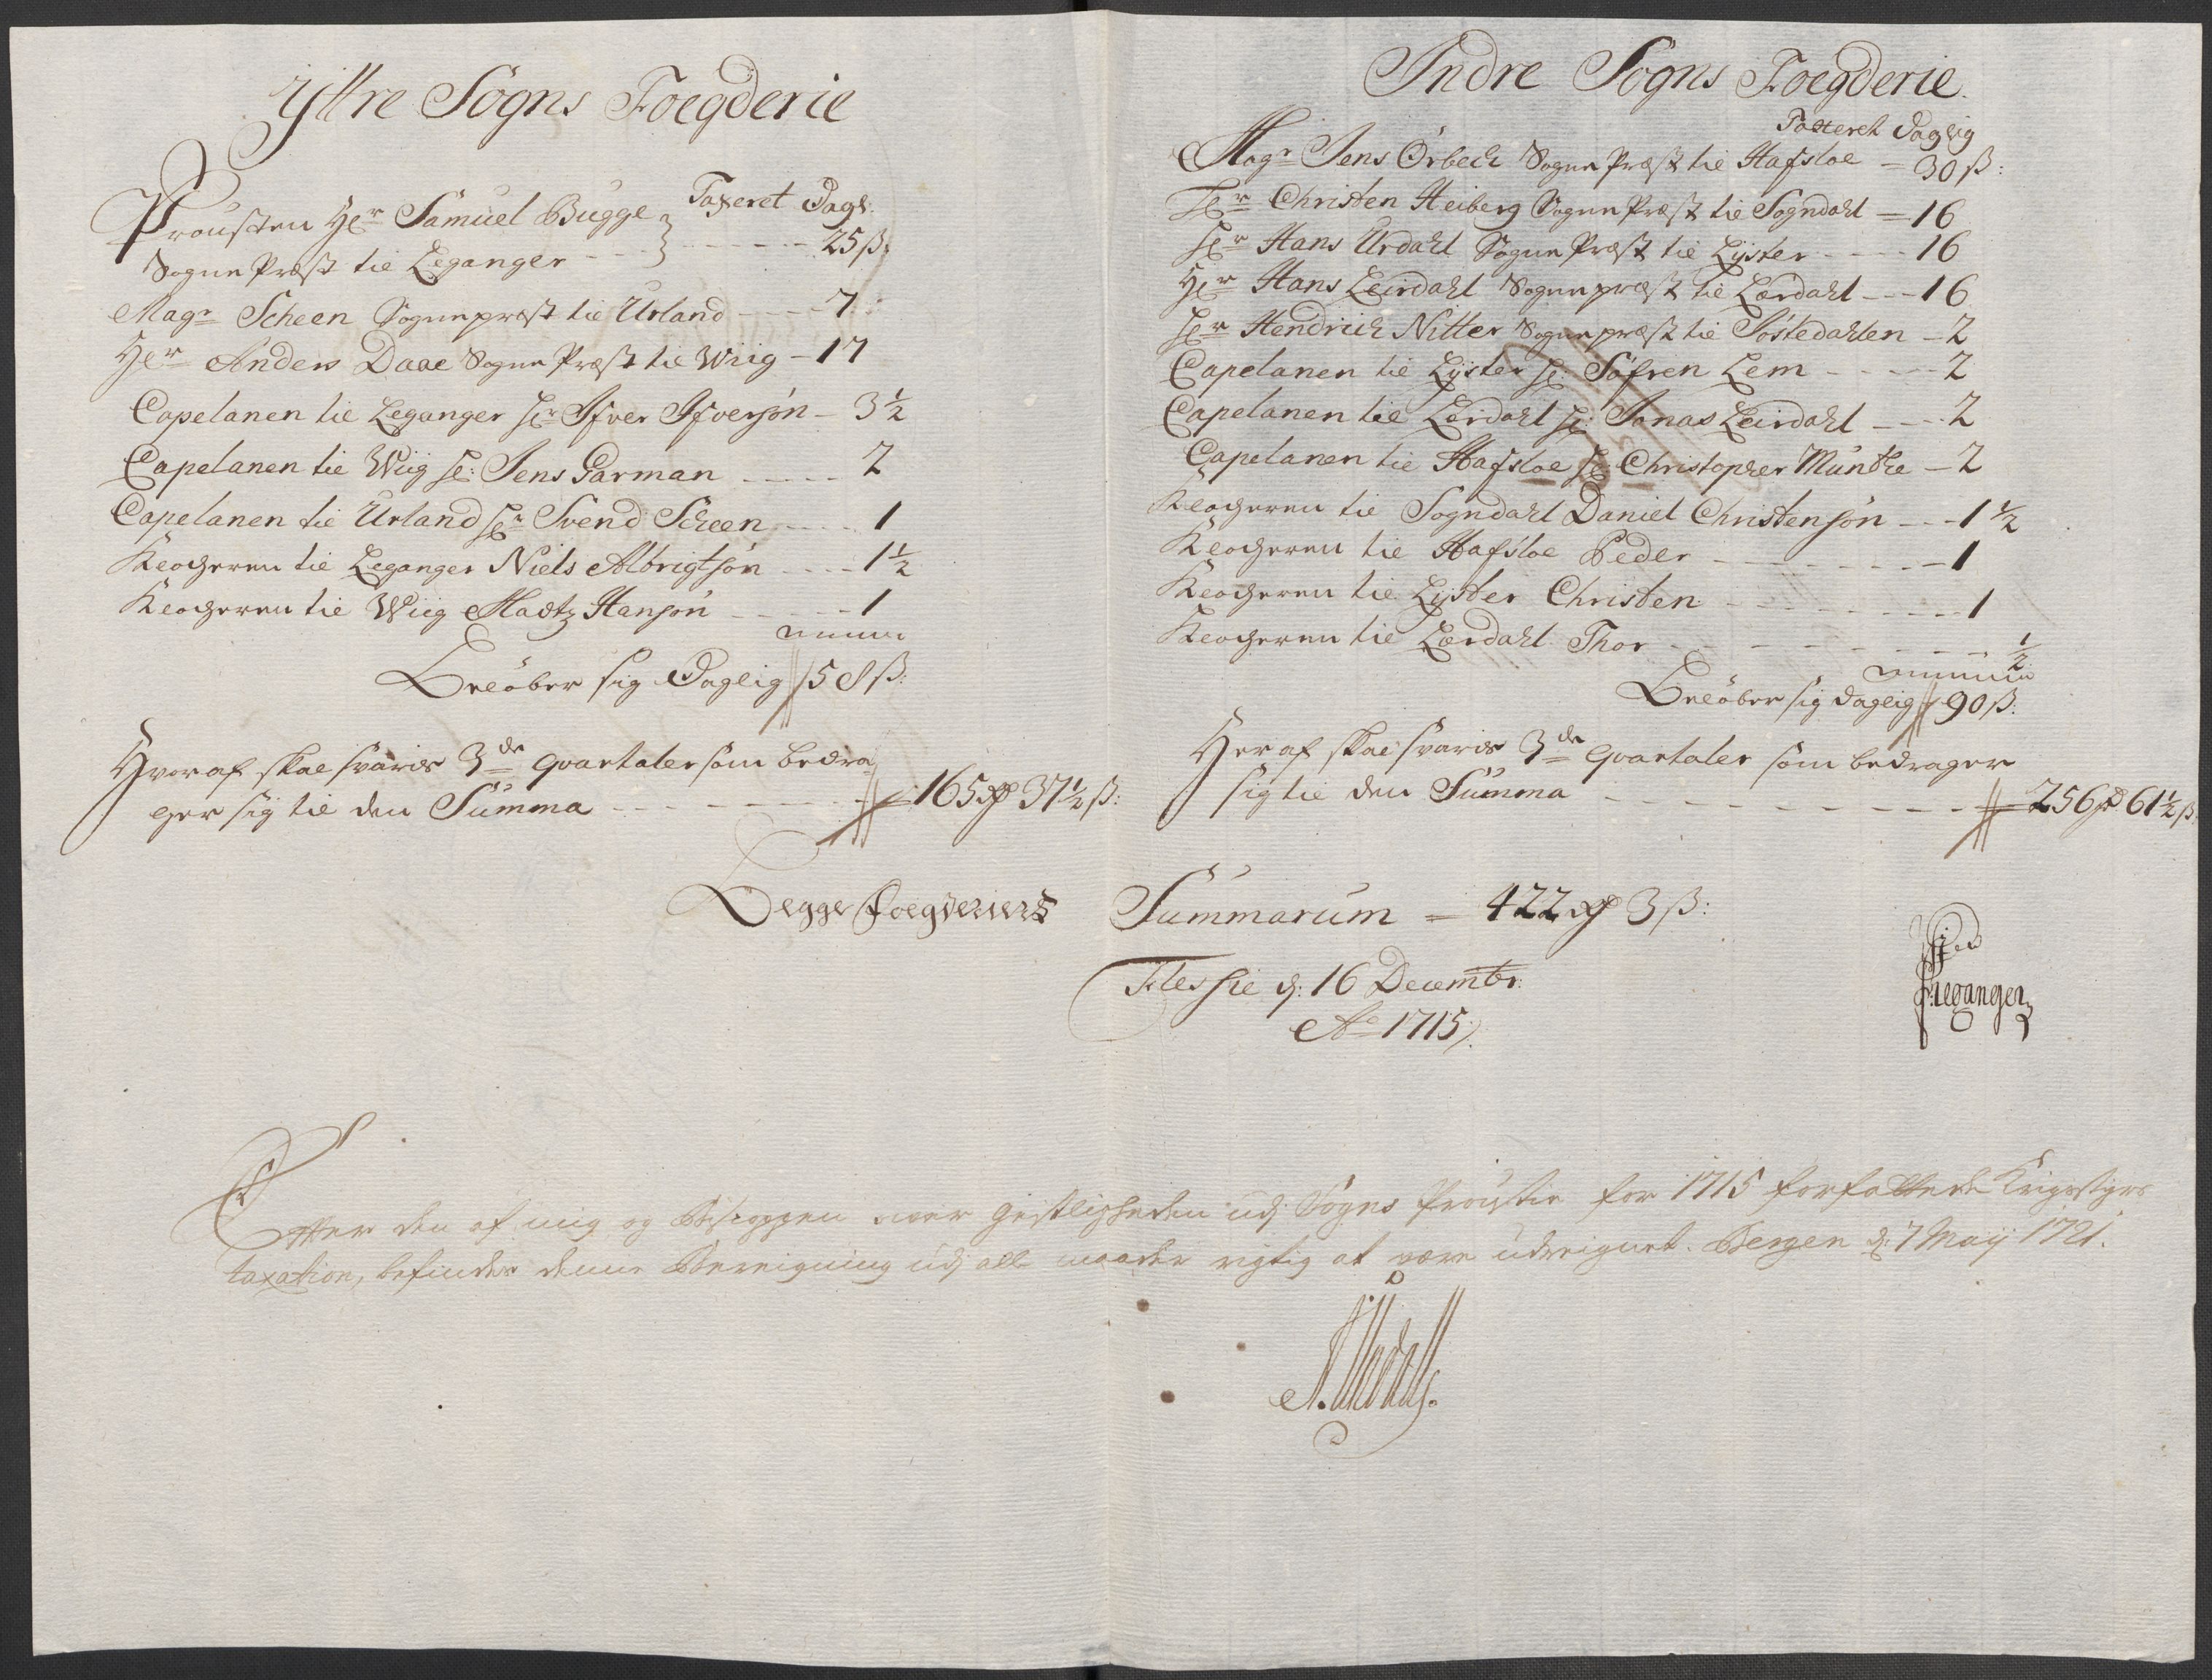 Ÿttre Sogns Foegderie
Taxeret Dagl:
Prousten Her Samuel Bugge
Sogne Præst til Leganger - - - 25 ß:
Magr Scheen Sognepræst til Urland - - - - 7 :
Her Anders Daae Sogne Præst til Wiig - 17
Capelanen til Leganger Hr Ifver Ifversøn - 3 ½
Capelanen til Wiig H: Jens Garman - - - - - 2
Capelanen til Urland Hr Svend Scheen - - - - 1
Klocheren til Leganger Niels Albrigtsøn - - - - 1 ½
Klocheren til Wiig Madtz Hansøn - - - - 1
Beløber sig Daglig 58 ß:
Hvoraf skal svaris 3de qvartaler som bedra-
ger sig til den Summa - - - - - - - 165 rd 37 ½ ß:
Indre Sogns Foegderie.
Taxteret Daglig
Magr Jens Ørbech Sogne Præst til Hafsloe - 30 ß:
Hr Christen Heiberg Sogne Præst til Sogndahl - 16
Hr Hans Urdahl Sogne Præst til Lÿster - - - - 16
Her Hans Leirdahl Sognepræst til Lærdahl - - - 16
Hr Hendrich Nitter Sognepræst til Jostedahlen - 2
Capelanen til Lÿster H: Søfren Lem - - - - - 2
Capelanen til Lærdahl H: Jonas Leirdahl - - - - 2
Capelanen til Hafsloe H: Christopher Munthe - 2
Klocheren til Sogndahl Daniel Christensøn - - - 1 ½
Klocheren til Hafsloe Peder - - - - - - - - 1
Klocheren til Lÿster Christen - - - - - - - - 1
Klocheren til Lærdahl Thor - - - - - - - - ½
Beløber sig daglig 90 ß:
Heraf skal svaris 3de qvartaler som bedrager
sig til den Summa - - - - - - - - - 256 rd 61 ½ ß
Begge Foegderiers Summarum = 422 rd 3 ß:
Flesche d: 16 Decembr:
Ao 1715
Leganger
Efter den af mig og Bischoppen over geistligheden udj Sogns Proustie for 1715 forfattede Krigsstyrs
taxation, befindes denne Bereigning udj alle maader rigtig at være udreignet. Bergen d: 7 Maÿ 1721.